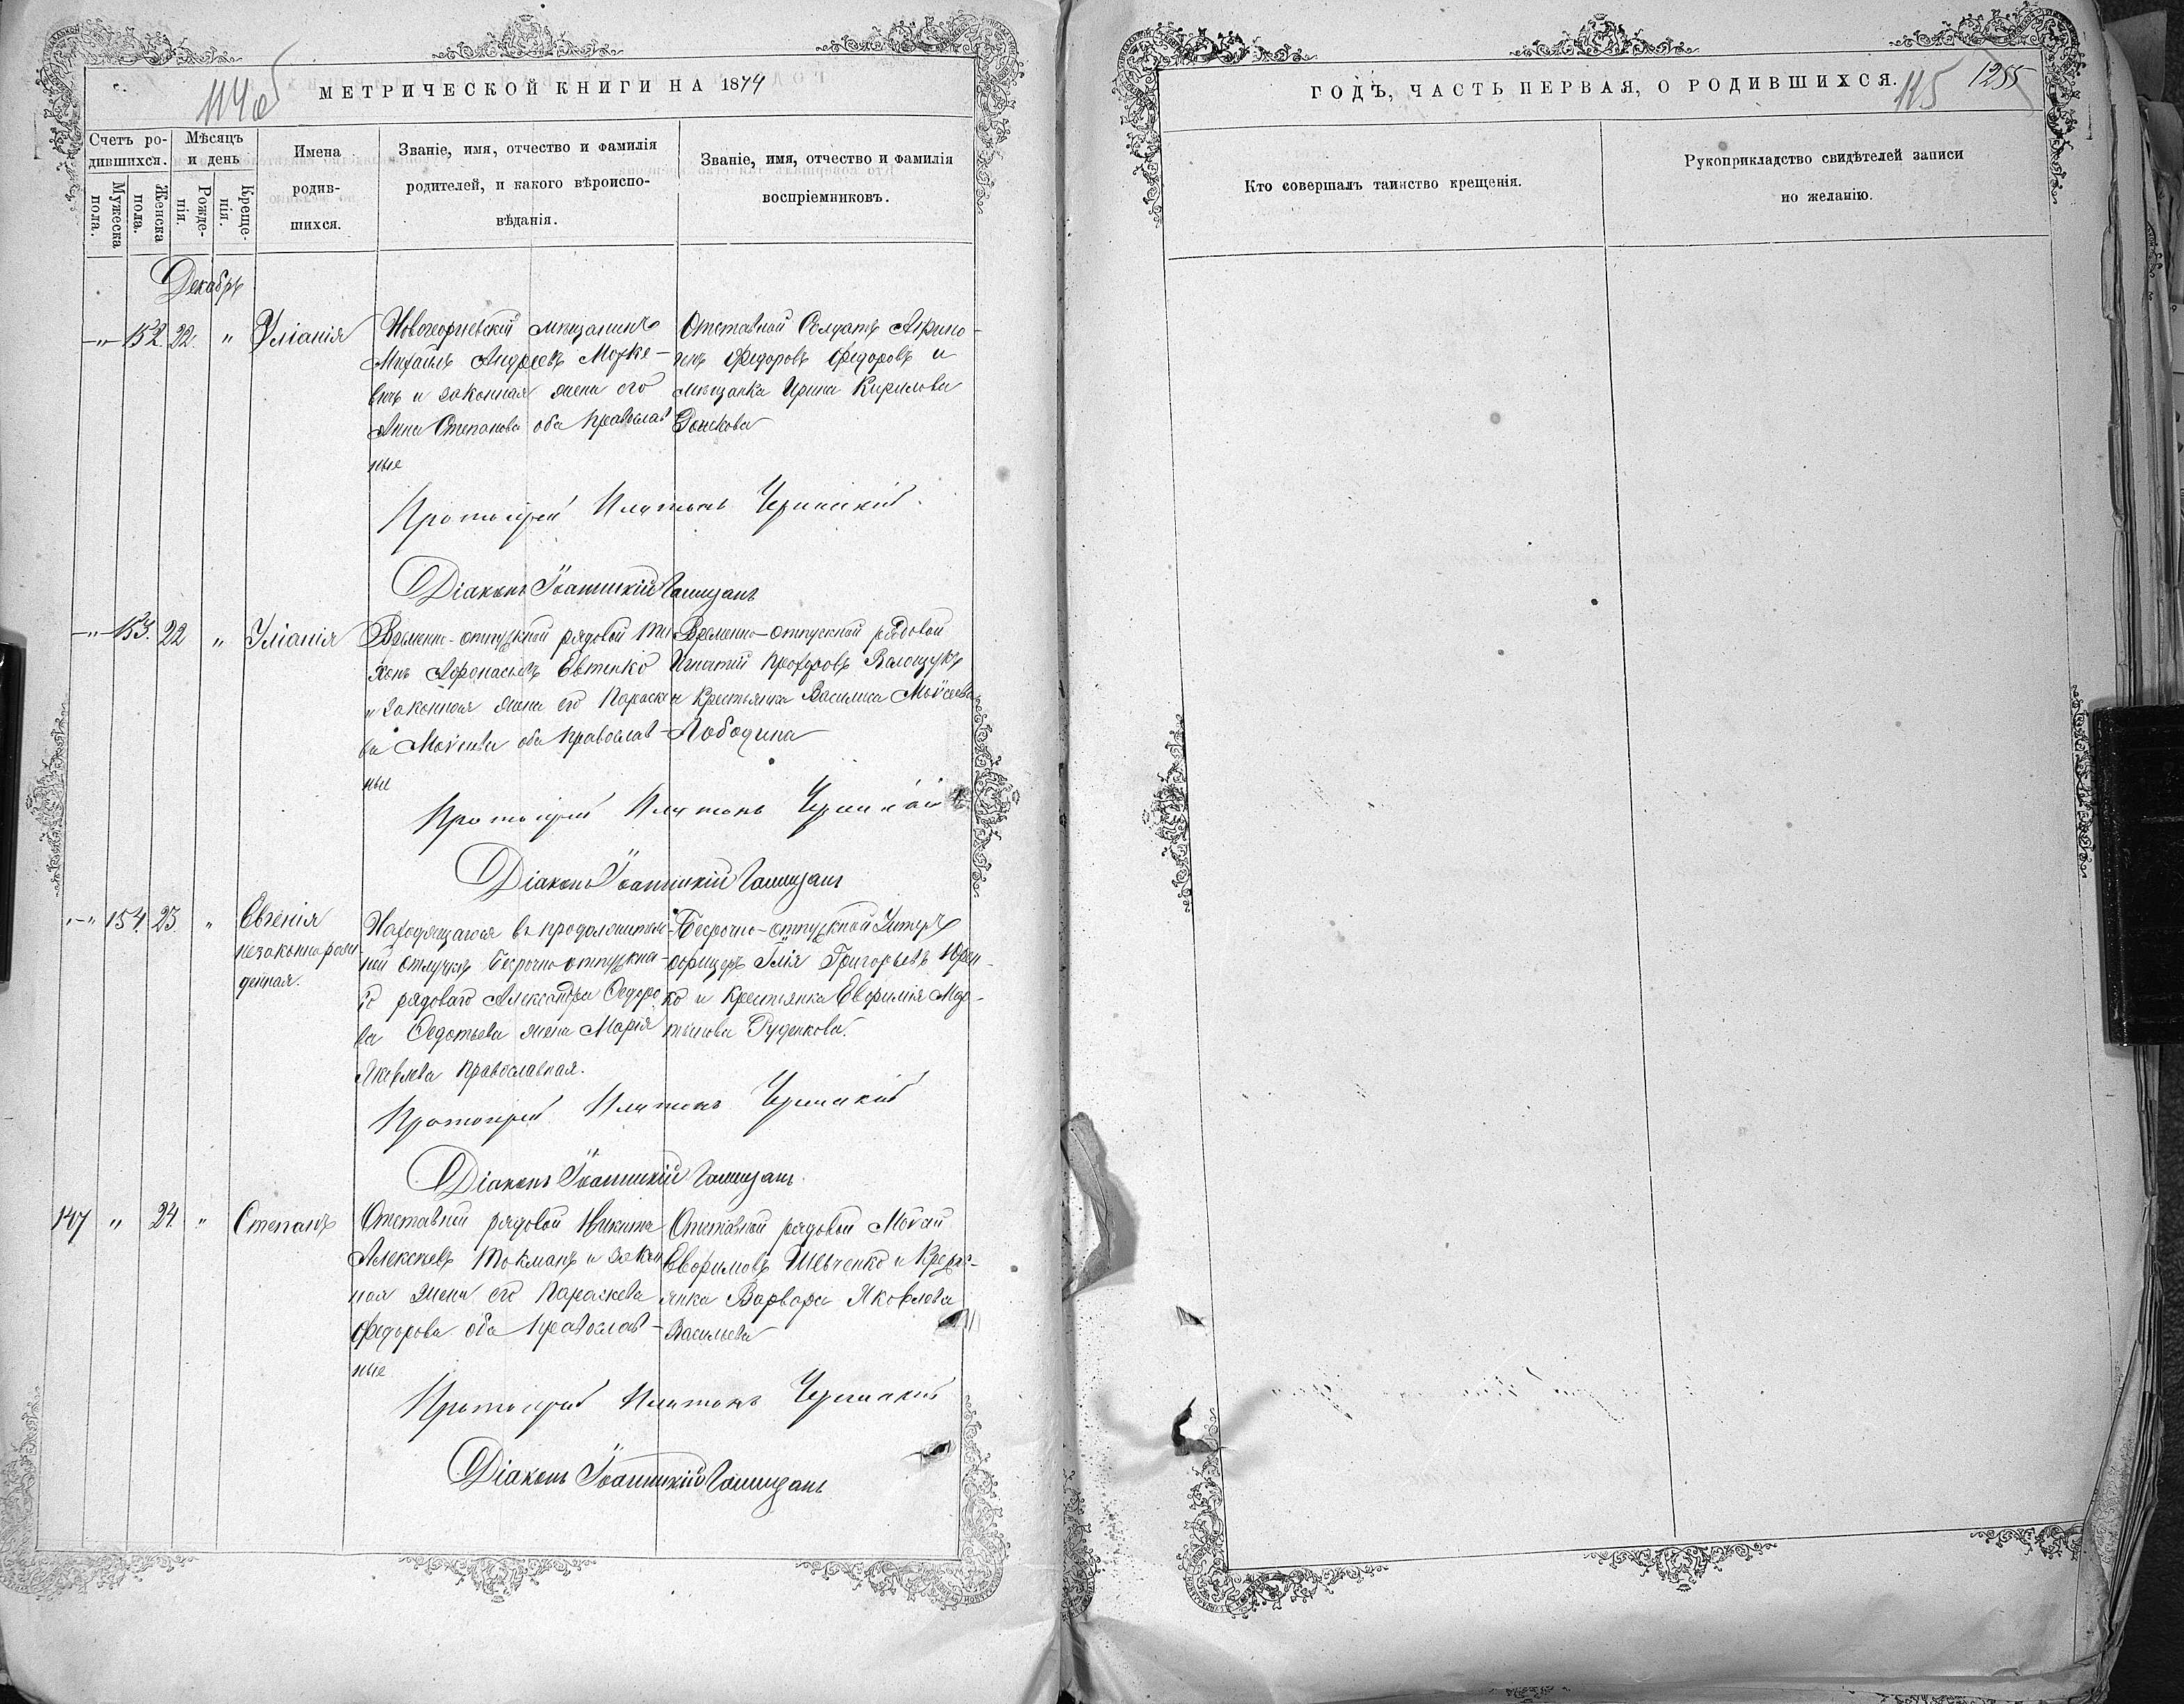 114об
МЕТРИЧЕСКОЙ КНИГИ НА 1874
Счетъ ро-
дившихся.
Мужеска пола.
Женска пола.
Мѣсяцъ
и день
Рожде-
нія.
Креще-
нія.
Имена
родив-
шихся.
Званіе, имя, отчество и фамилія
родителей, и какого вѣроиспо-
вѣданія.
Званіе, имя, отчество и фамилія
воспріемниковъ.
Декабрь
-„- 152. 22. „ Уліанія
Новогеоргіевскій мѣщанинъ
Михаилъ Андреевъ Мацке-
вичъ и законная жена его
Анна Степанова оба православ
ные
Отставной Солдатъ
Федоровъ Федоровъ и
мѣщанка Ирина Кирилова
Донскова
Протоіерей Платонъ
Діаконъ Іоанникій
-„- 153. 22 „ Уліанія
Временно-отпускной рядовой Ти
хонъ Афонасьевъ Евтенко
и законная жена его Параске
ва Моисеева оба православ-
ные
Временно-отпускной рядовой
Игнатій Прохоровъ Волощукъ
и крестьянка Василиса Моисеева
Лободина
Протоіерей Платонъ
Діаконъ Іоанникій
-„- 154. 23. „ Евгенія
незаконнорож
денная.
Находящагося въ продолжитель-
ной отлучкѣ безсрочно-отпускна-
го рядоваго Александра Ѳедоро
ва Ѳедотьева жена Марія
Яковлева православная.
Безсрочно-отпускной Унтеръ
офицеръ Илія Григорьевъ Юрен-
ко и крестьянка Евфимія Мар-
тынова Руденкова.
Протоіерей Платонъ
Діаконъ Іоанникій
147 „ 24. „ Степанъ
Отставной рядовой Никита
Алексѣевъ Токмакъ и закон
ная жена его Параскева
Федорова оба православ-
ные
Отставной рядовой Мокій
Евфимовъ Шевченко и Крест-
янка Варвара Яковлева
Васильева
Протоіерей Платонъ
Діаконъ Іоанникій
ГОДЪ, ЧАСТЬ ПЕРВАЯ, О РОДИВШИХСЯ.
115
1255
Кто совершалъ таинство крещенія.
Рукоприкладство свидѣтелей записи
по желанію.